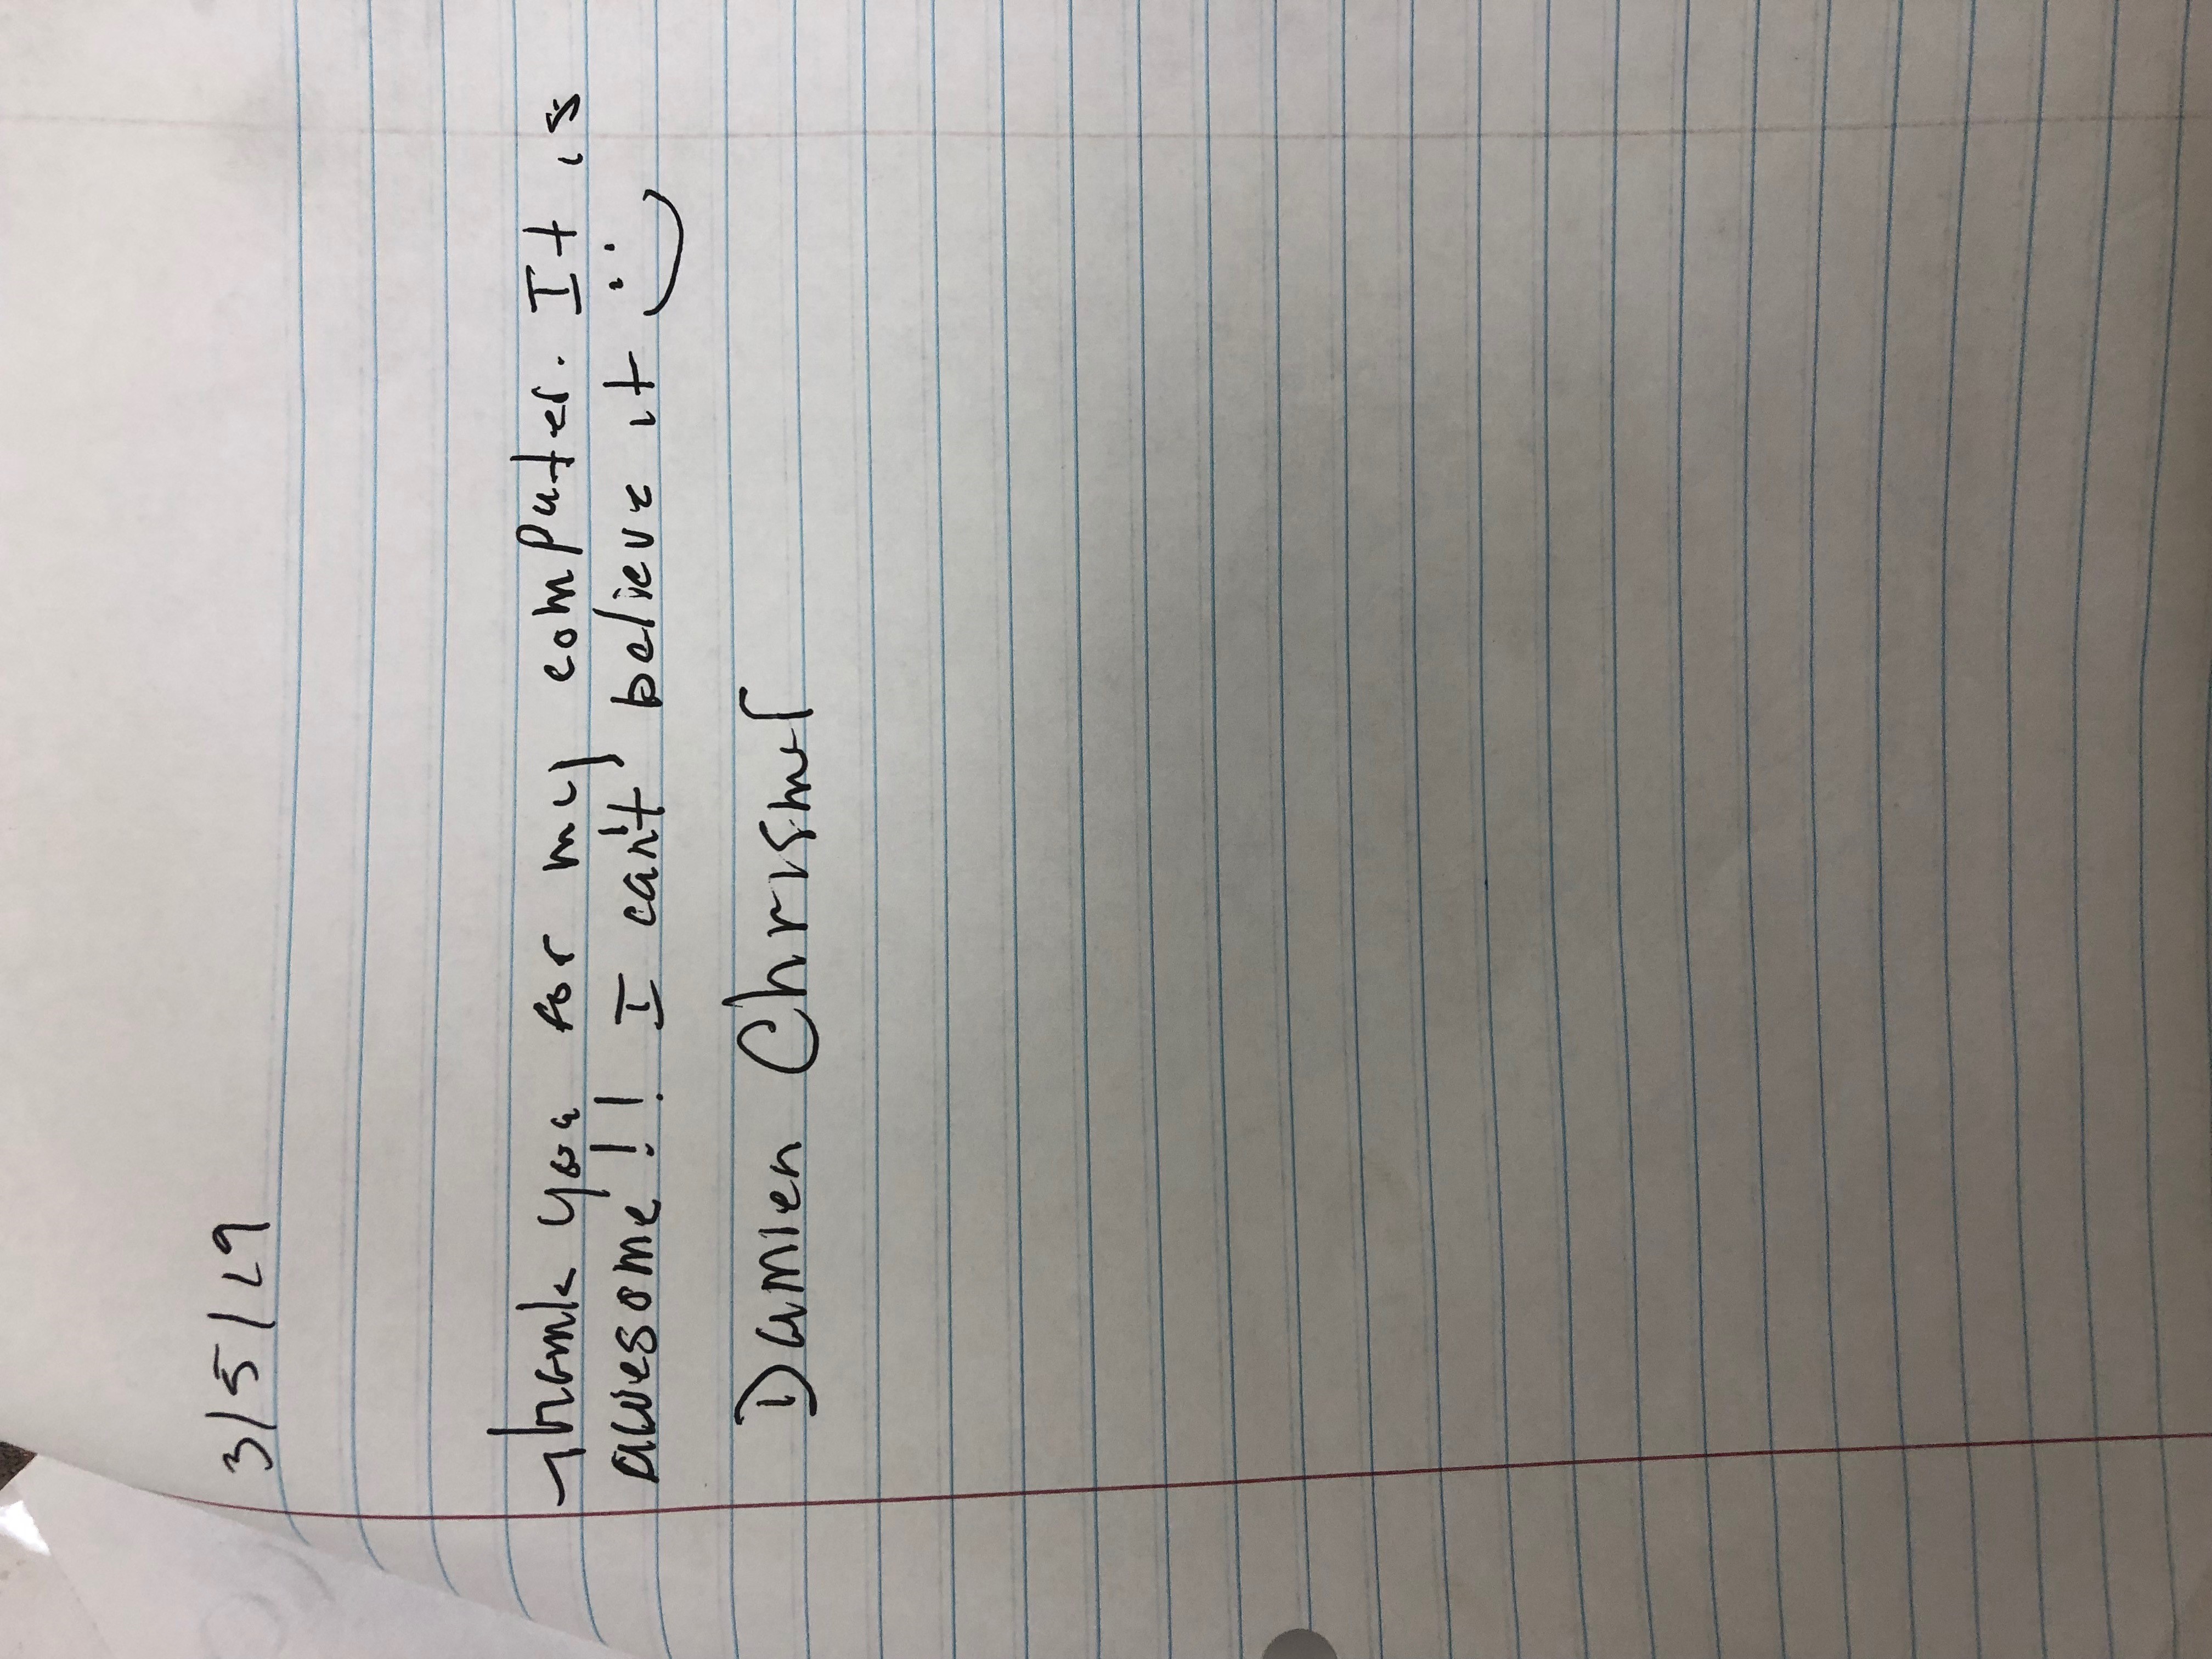 3/5/19
Thank you for my computer. It is
awesome!! I can't believe it :)
Damien